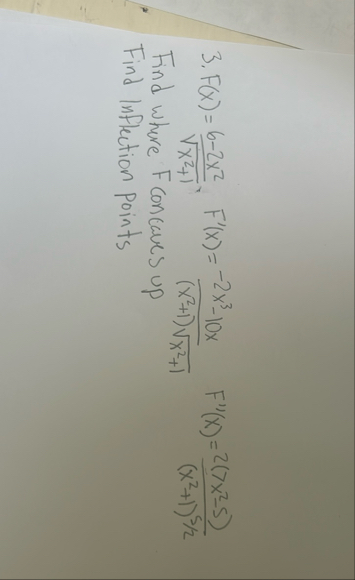 3. F(x) = 6-2x²/√x²+1, F'(x) = -2x³-10x/(x²+1)√x²+1 F''(x) = 2(7x²-5)/(x²+1)^5/2
Find where F concaves up
Find Inflection points